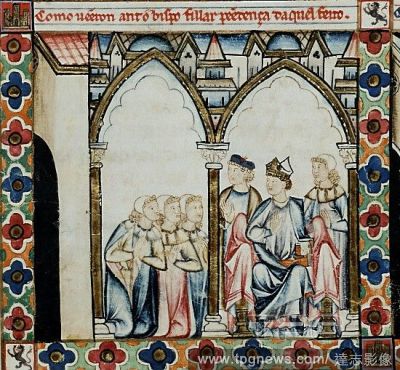 Como ueeron anto bispo fillar peẽdença daquel feito.
www.tpgnews.com/ 達志影像